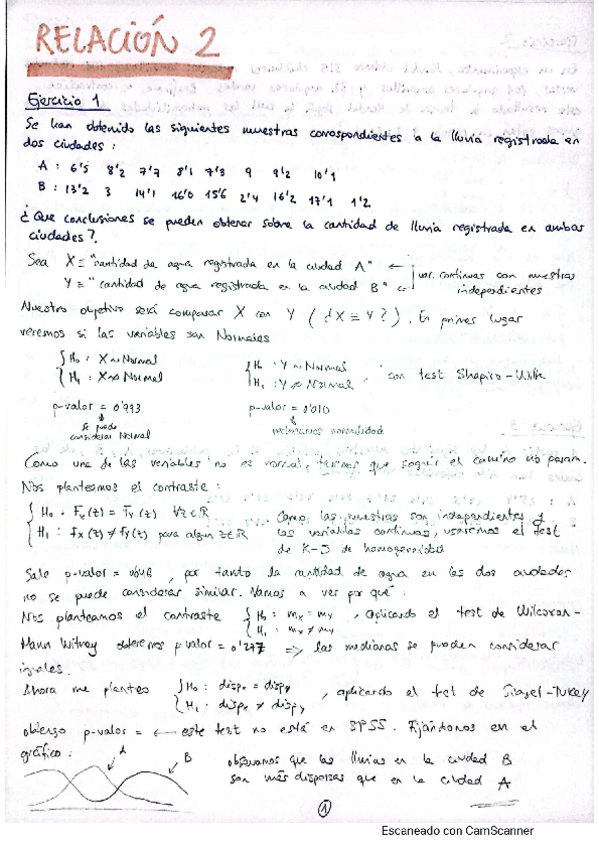 RELACIÓN 2
Ejercicio 1
Se han obtenido las siguientes muestras correspondientes a la lluvia registrada en
dos ciudades :
A : 6'5 8'2 7'7 8'1 7'3 9 9'2 10'1
B : 13'2 3 14'1 16'0 15'6 2'4 16'2 17'1 1'2
¿Que conclusiones se pueden obtener sobre la cantidad de lluvia registrada en ambas
ciudades?.
Sea X ≡ "cantidad de agua registrada en la ciudad A" ← var. continuas con muestras
Y ≡ "cantidad de agua registrada en la ciudad B" ← independientes
Nuestro objetivo será comparar X con Y ( ¿X ≡ Y? ). En primer lugar
veremos si las variables son Normales
{ H₀ : X ~ Normal { H₀ : Y ~ Normal
{ H₁ : X ≁ Normal { H₁ : Y ≁ Normal , con test Shapiro-Wilk
p-valor = 0'993 p-valor = 0'010
se puede
considerar Normal rechazamos normalidad
Como una de las variables no es normal, tenemos que seguir el camino no param.
Nos planteamos el contraste :
{ H₀ : Fx(z) = Fy(z) ∀z∈R Como las muestras son independientes y
{ H₁ : Fx(z) ≠ Fy(z) para algun z∈R las variables continuas, usaremos el test
de K-S de homogeneidad
Sale p-valor = , por tanto la cantidad de agua en las dos ciudades
no se puede considerar similar. Vamos a ver por qué :
Nos planteamos el contraste { H₀ : mx = my , aplicando el test de Wilcoxon-
{ H₁ : mx ≠ my
Mann Witney obtenemos p valor = 0'277 ⇒ las medianas se pueden considerar
iguales.
Ahora me planteo { H₀ : dispx = dispy , aplicando el test de Siegel-Tukey
{ H₁ : dispx ≠ dispy
obtengo p-valor = ← este test no está en SPSS. Fijándonos en el
gráfico : A B observamos que las lluvias en la ciudad B
son más dispersas que en la ciudad A
1
Escaneado con CamScanner